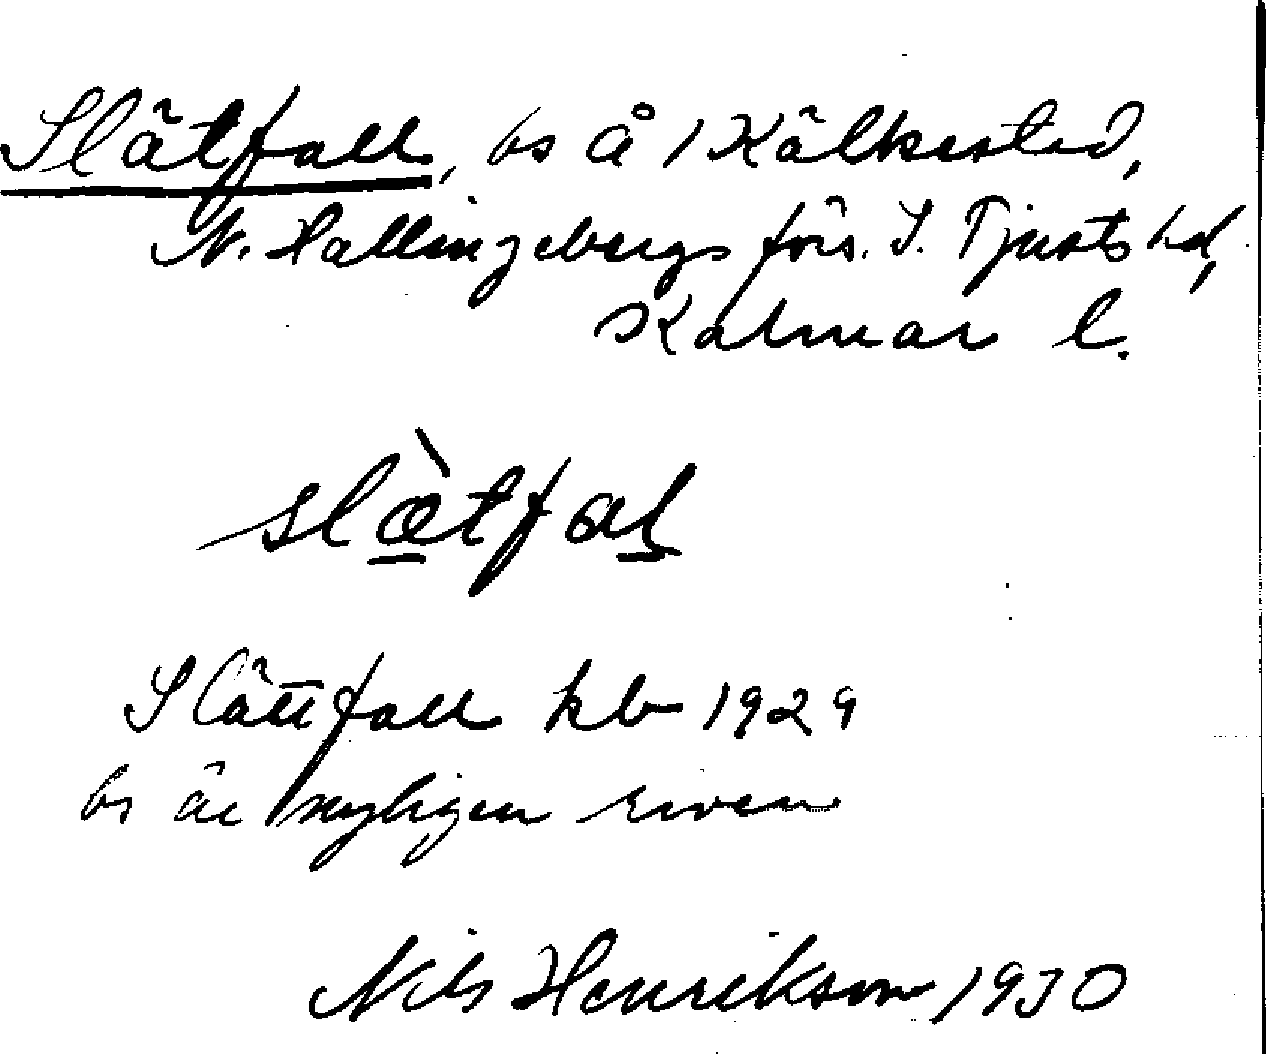 Slätfall, bs å 1 Kälkestad,
N. Hallingebergs förs. S. Tjusts hd,
Kalmar l.
slæ̀tfaḷ
Slättfall kb 1929
bs är nyligen riven
Nils Henrikson 1930